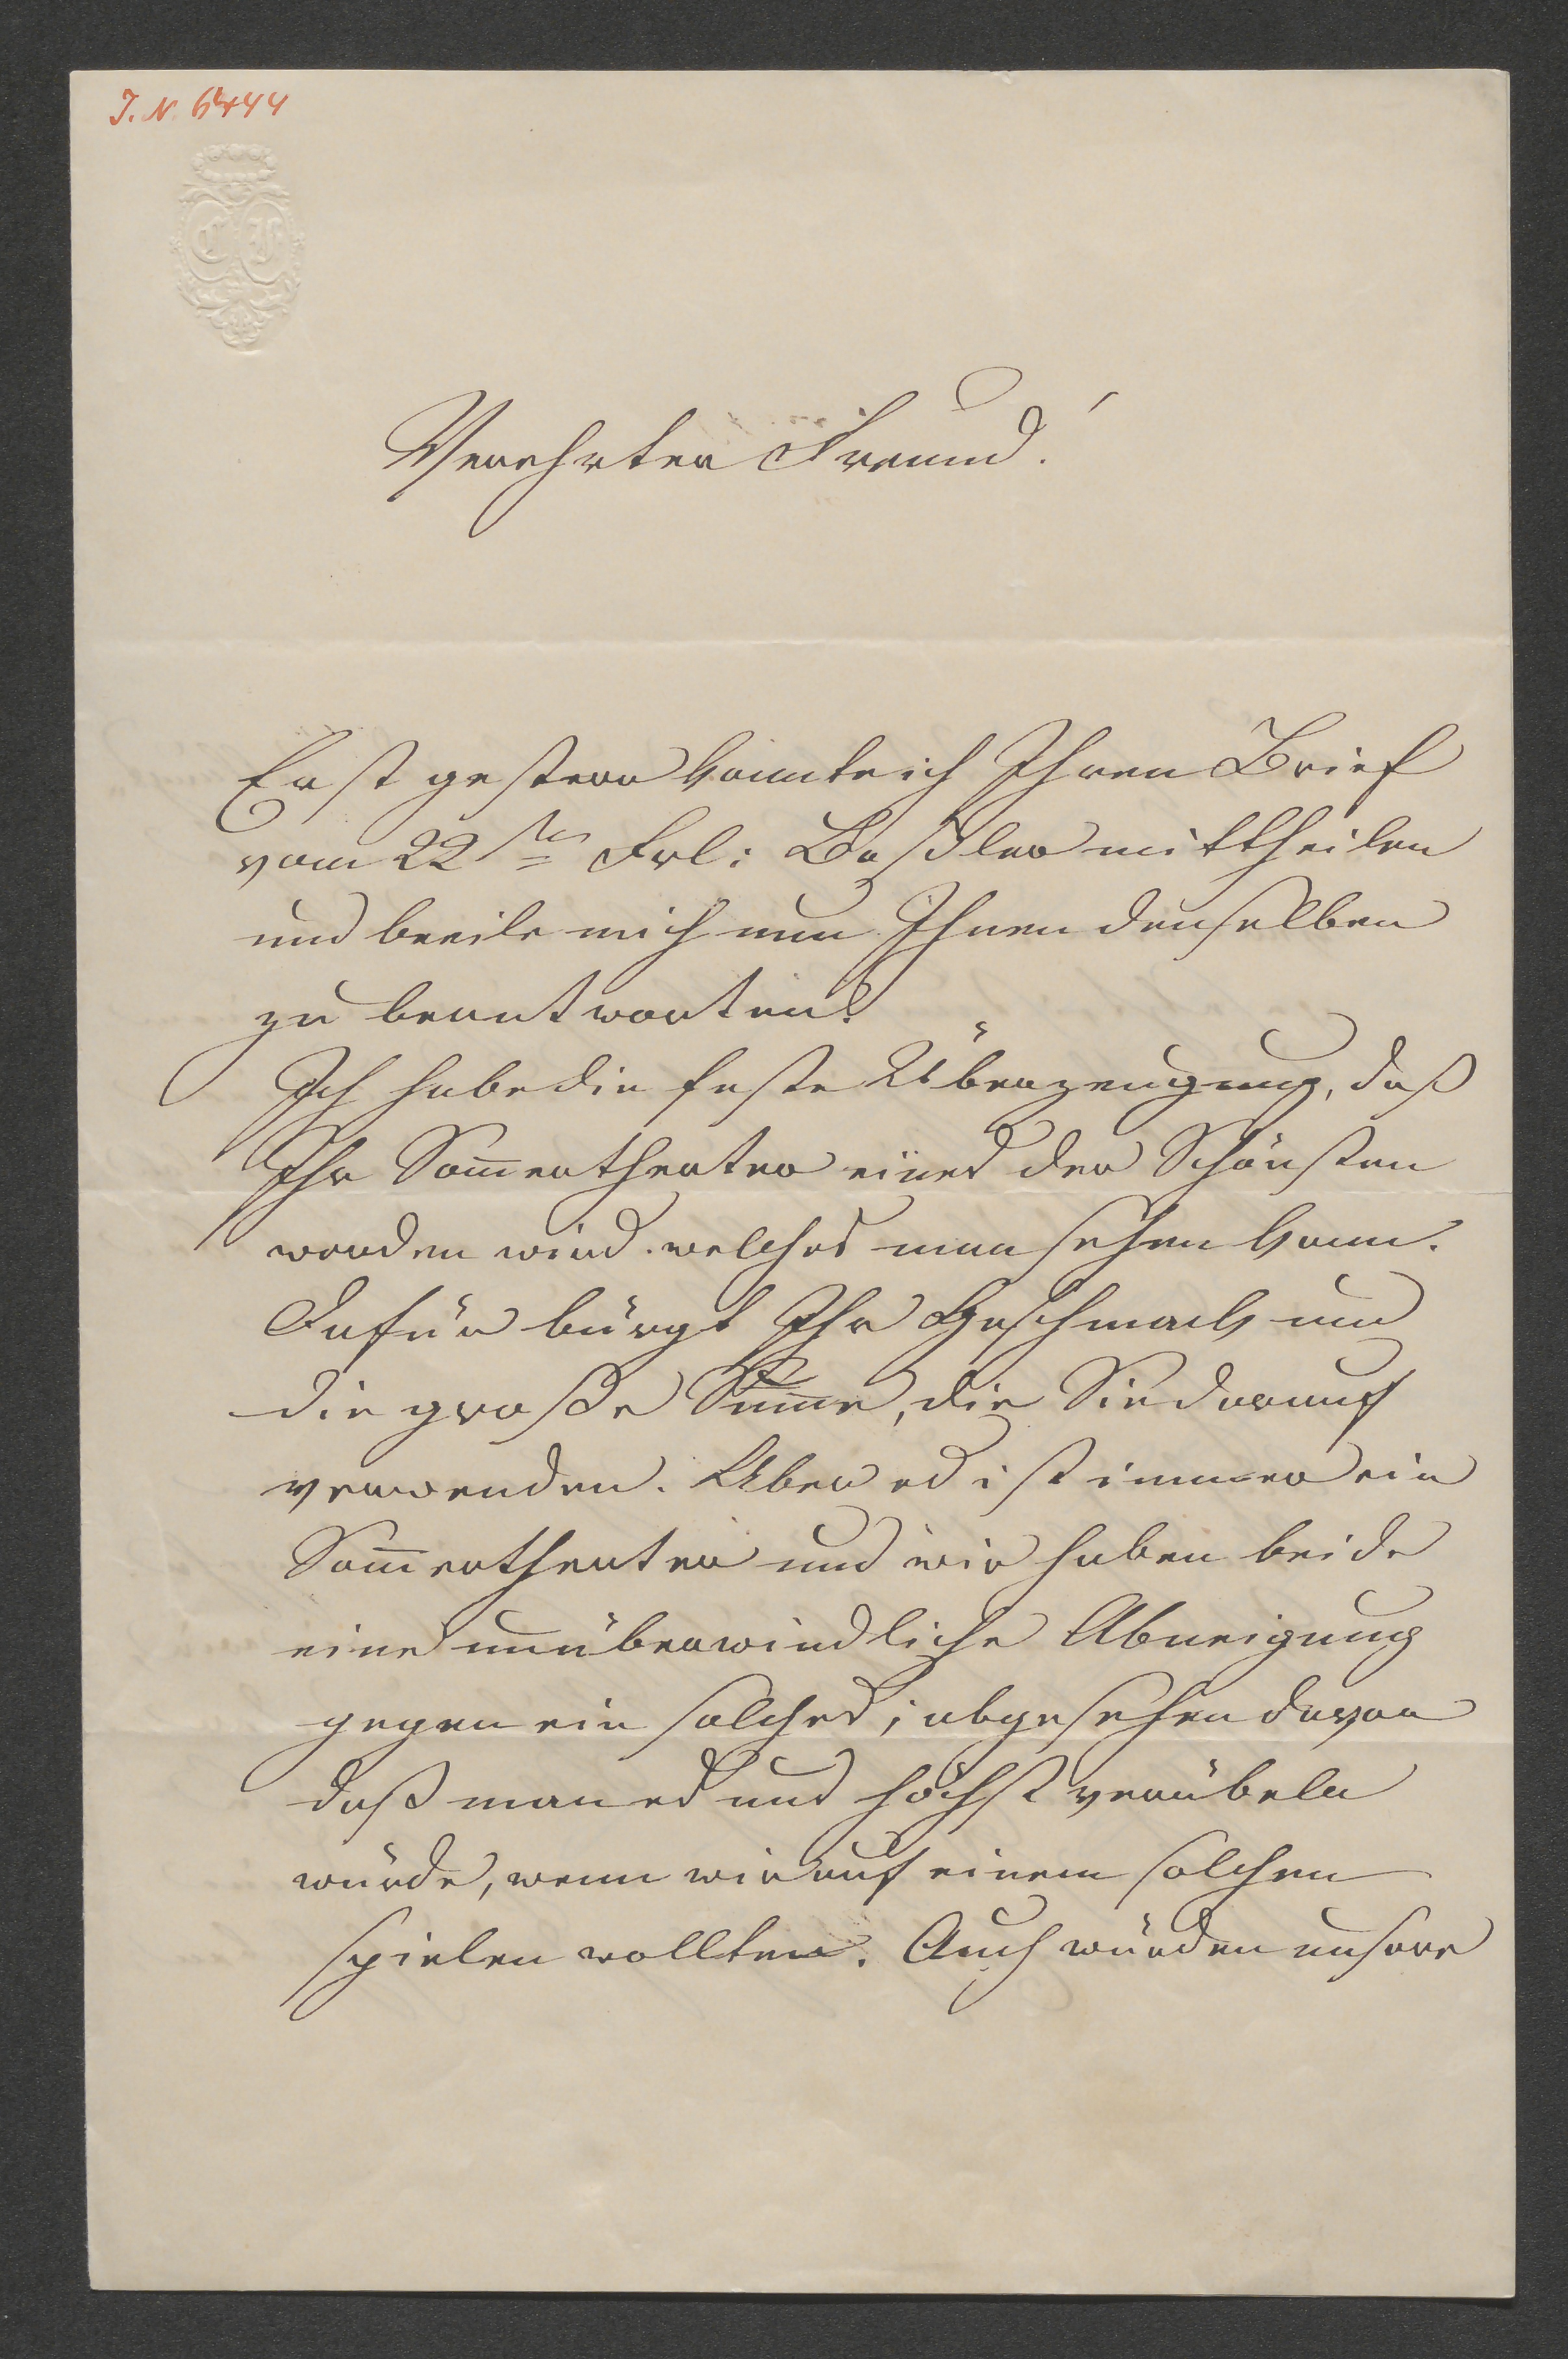 J. N. 6444
C F
Verehrter Freund!
Erst gestern konnte ich Ihren Brief
vom 22ten Frl: Boßler mittheilen
und beeile mich nun Ihnen denselben
zu beantworten.
Ich habe die feste Überzeugung, daß
Ihr Som̅ertheater eines der Schönsten
werden wird welches man sehen kann.
Dafür bürgt Ihr Geschmack und
die große Sum̅e, die Sie darauf
verwenden. Aber es ist immer ein
Som̅ertheater und wir haben beide
eine unüberwindliche Abneigung
gegen ein solches; abgesehen davon
daß man es uns höchst verübeln
würde, wenn wir auf einem solchen
spielen wollten. Auch würden unsere